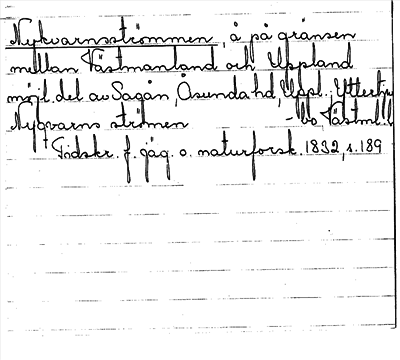 Nykvarnsströmmen, å på gränsen
mellan Västmanland och Uppland
möjl. del av Sagån, Åsunda hd, Uppl., Yttertju
Nyqvarns strömen -bo, Västml.
Tidskr. f. jäg. o. naturforsk. 1832, s. 189